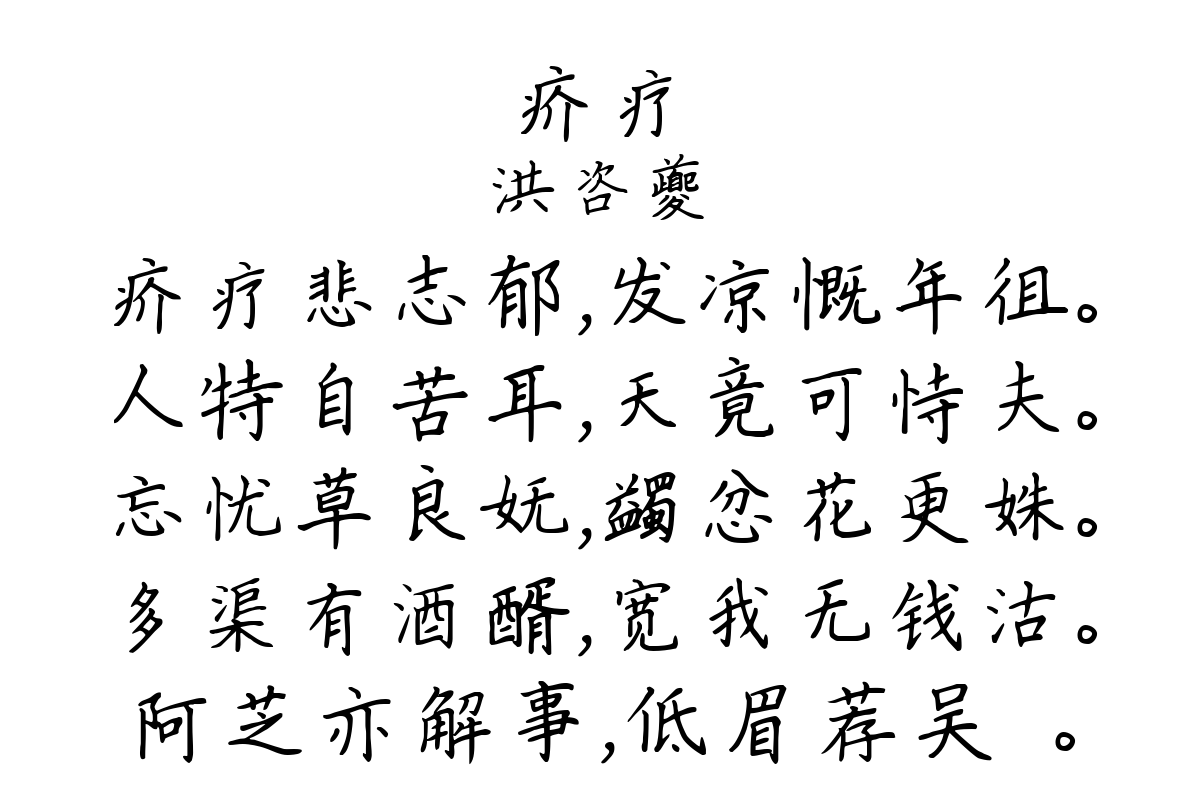 疥疗
洪咨夔
疥疗悲志郁,发凉慨年徂。
人特自苦耳,天竟可恃夫。
忘忧草良妩,蠲忿花更姝。
多渠有酒醑,宽我无钱沽。
阿芝亦解事,低眉荐吴 。